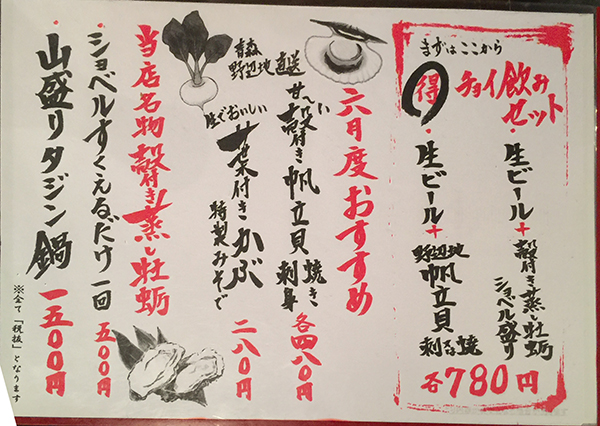 まずはここから
得 チョイ飲みセット
・生ビール+殻付き蒸し牡蛎ショベル盛り
・生ビール+野辺地帆立貝 刺or焼
各780円
六月度おすすめ
青森野辺地直送
甘〜い殻付き帆立貝 焼き 刺身 各四八〇円
生でおいしい
葉付きかぶ 特製みそで 二八〇円
当店名物 殻付き蒸し牡蛎
・ショベルすくえるだけ一回 五〇〇円
・山盛りタジン鍋 一五〇〇円
※全て「税抜」となります